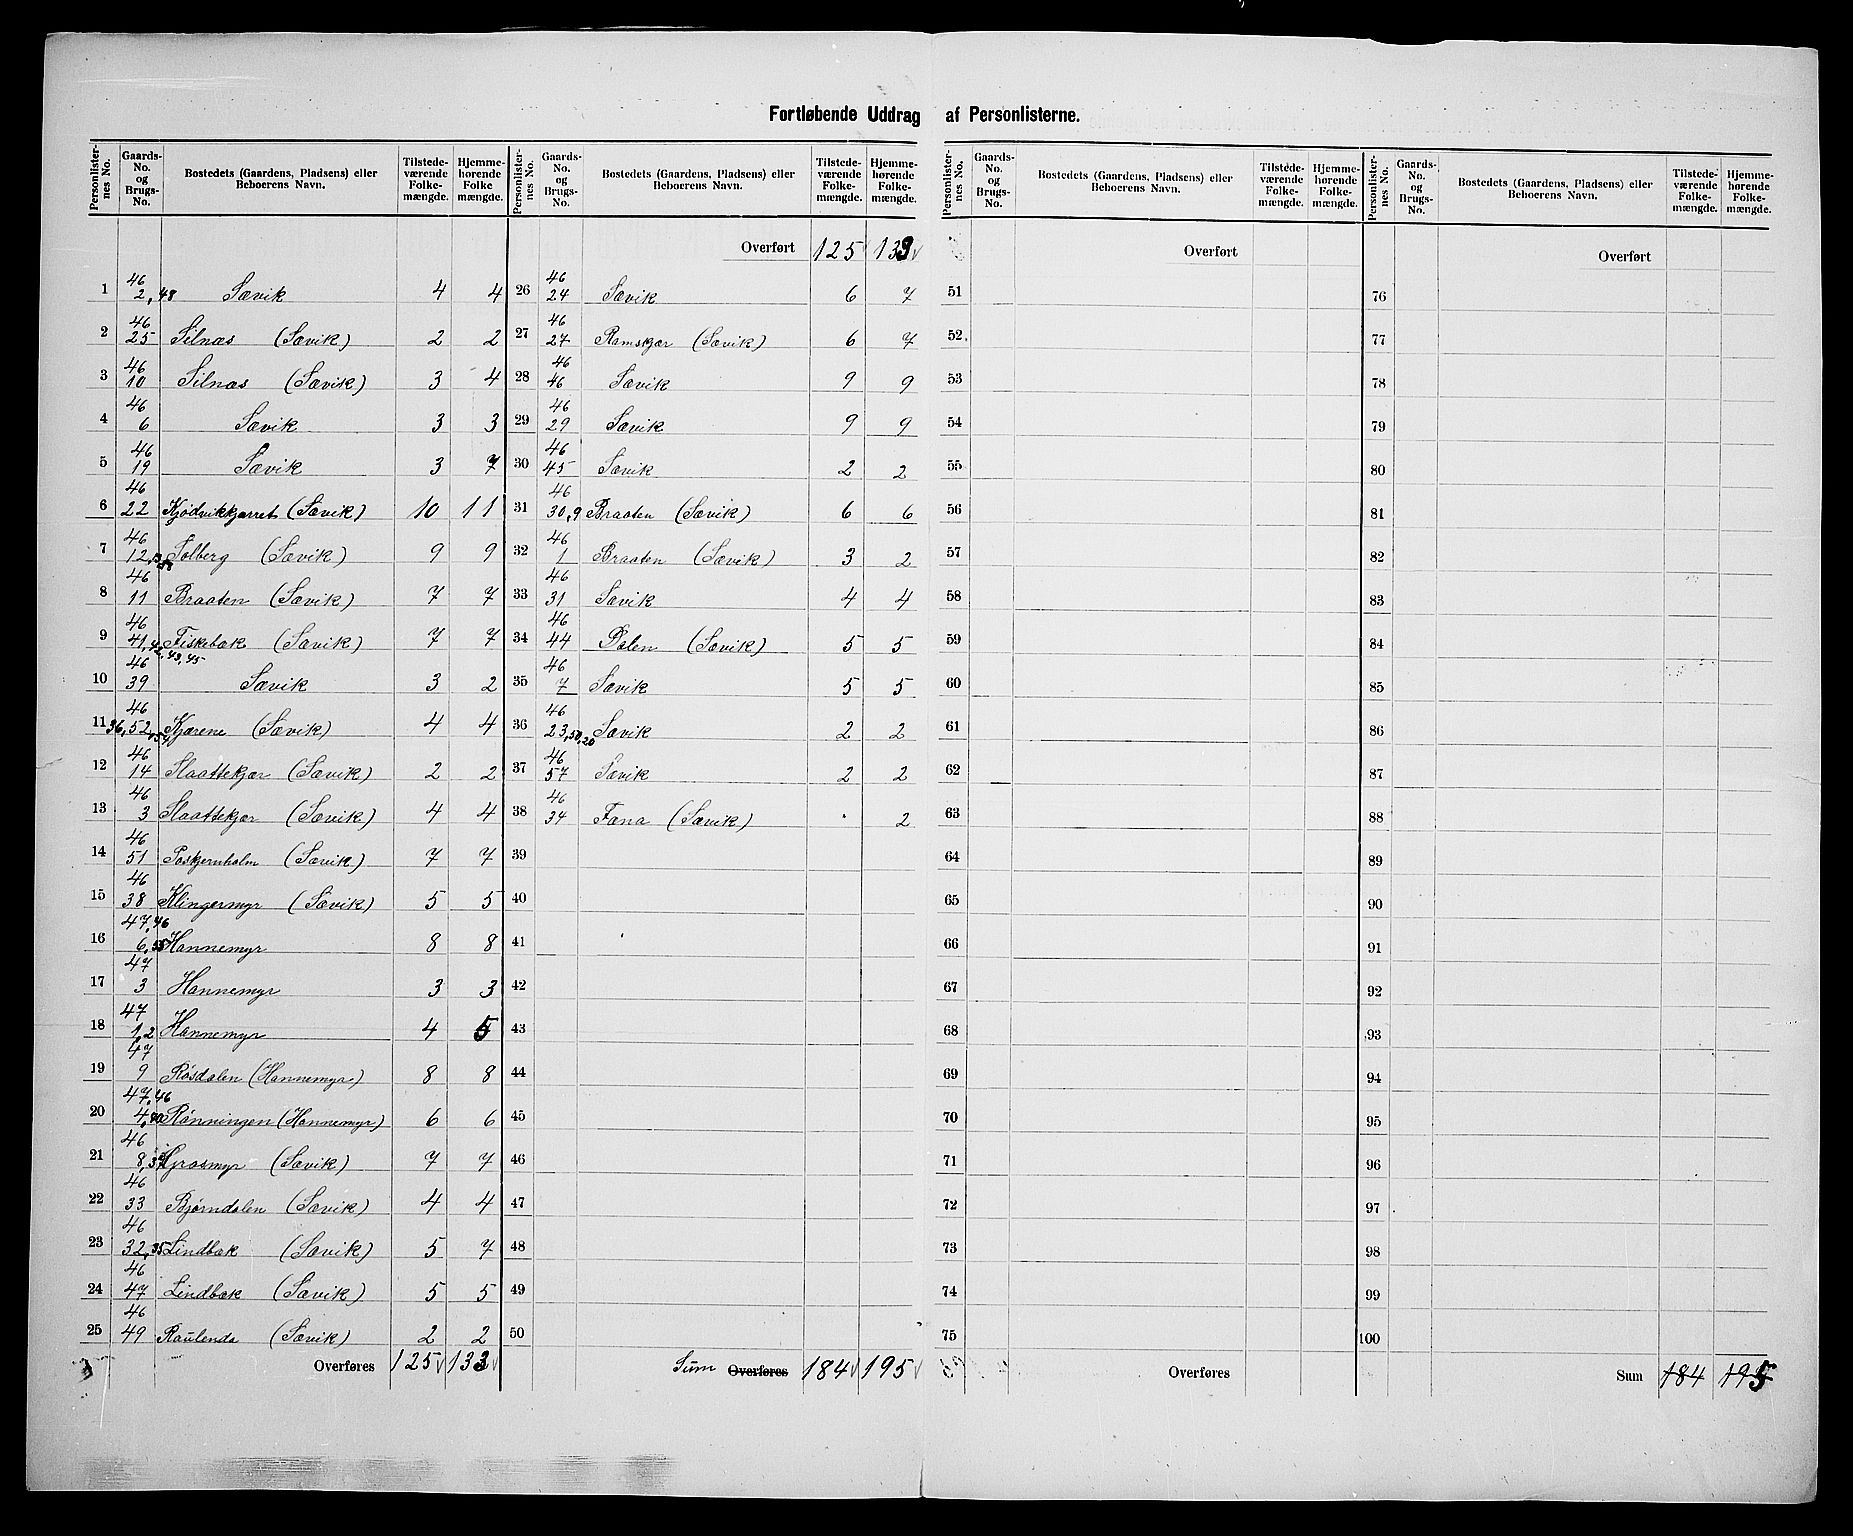 Fortløbende Uddrag af Personlisterne.
Personlisternes No. | Gaards-No. og Brugs-No. | Bostedets (Gaardens, Pladsens) eller Beboerens Navn. | Tilstedeværende Folkemængde. | Hjemmehørende Folke mængde.
1 | 46 2, 48 | Sævik | 4 | 4
2 | 46 25 | Silnæs (Sævik) | 2 | 2
3 | 46 10 | Silnæs (Sævik) | 3 | 4
4 | 46 6 | Sævik | 3 | 3
5 | 46 19 | Sævik | 3 | 7
6 | 46 22 | Kjødvikkjærret (Sævik) | 10 | 11
7 | 46 12, | Solberg (Sævik) | 9 | 9
8 | 46 11 | Braaten (Sævik) | 7 | 7
9 | 46 41, 42, 43, 45 | Fiskebæk (Sævik) | 7 | 7
10 | 46 39 | Sævik | 3 | 2
11 | 46 36, 52, 54 | Kjærene (Sævik) | 4 | 4
12 | 46 14 | Slaattekjær (Sævik) | 2 | 2
13 | 46 3 | Slaattekjær (Sævik) | 4 | 4
14 | 46 51 | Paskjernholm (Sævik) | 7 | 7
15 | 46 38 | Klingermyr (Sævik) | 5 | 5
16 | 47, 46 6, 55 | Hannemyr | 8 | 8
17 | 47 3 | Hannemyr | 3 | 3
18 | 47 1, 2 | Hannemyr | 4 | 5
19 | 47 9 | Røsdalen (Hannemyr) | 8 | 8
20 | 47, 46 4, 40 | Rønningen (Hannemyr) | 6 | 6
21 | 46 8, 37 | Græsmyr (Sævik) | 7 | 7
22 | 46 33 | Bjørndalen (Sævik) | 4 | 4
23 | 46 32, 35 | Lindbæk (Sævik) | 5 | 7
24 | 46 47 | Lindbæk (Sævik) | 5 | 5
25 | 46 49 | Raulende (Sævik) | 2 | 2
Overføres 125 133
Personlisternes No. | Gaards-No. og Brugs-No. | Bostedets (Gaardens, Pladsens) eller Beboerens Navn. | Tilstedeværende Folkemængde. | Hjemmehørende Folkemængde.
Overført 125 133
26 | 46 24 | Sævik | 6 | 7
27 | 46 27 | Ramskjær (Sævik) | 6 | 7
28 | 46 46 | Sævik | 9 | 9
29 | 46 29 | Sævik | 9 | 9
30 | 46 45 | Sævik | 2 | 2
31 | 46 30, 9 | Braaten (Sævik) | 6 | 6
32 | 46 1 | Braaten (Sævik) | 3 | 2
33 | 46 31 | Sævik | 4 | 4
34 | 46 44 | Dalen (Sævik) | 5 | 5
35 | 46 7 | Sævik | 5 | 5
36 | 46 23, 50, 20 | Sævik | 2 | 2
37 | 46 57 | Sævik | 2 | 2
38 | 46 34 | Fana (Sævik) | . | 2
39
40
41
42
43
44
45
46
47
48
49
50
Sum Overføres 184 195
Personlisternes No. | Gaards-No. og Brugs-No. | Bostedets (Gaardens, Pladsens) eller Beboerens Navn. | Tilstedeværende Folkemængde. | Hjemmehørende Folkemængde.
Overført
51
52.
53
54
55
56
57
58
59
60
61
62
63
64
65
66
67
68
69
70
71
72
73
74
75
Overføres
Personlisternes No. | Gaards-No. og Brugs-No. | Bostedets (Gaardens, Pladsens) eller Beboerens Navn. | Tilstedeværende Folkemængde. | Hjemmehørende Folkemængde.
Overført
76
77
78
79
80
81
82
83
84
85
86
87
88
89
90
91
92
93
94
95
96
97
98
99
100
Sum 184 195